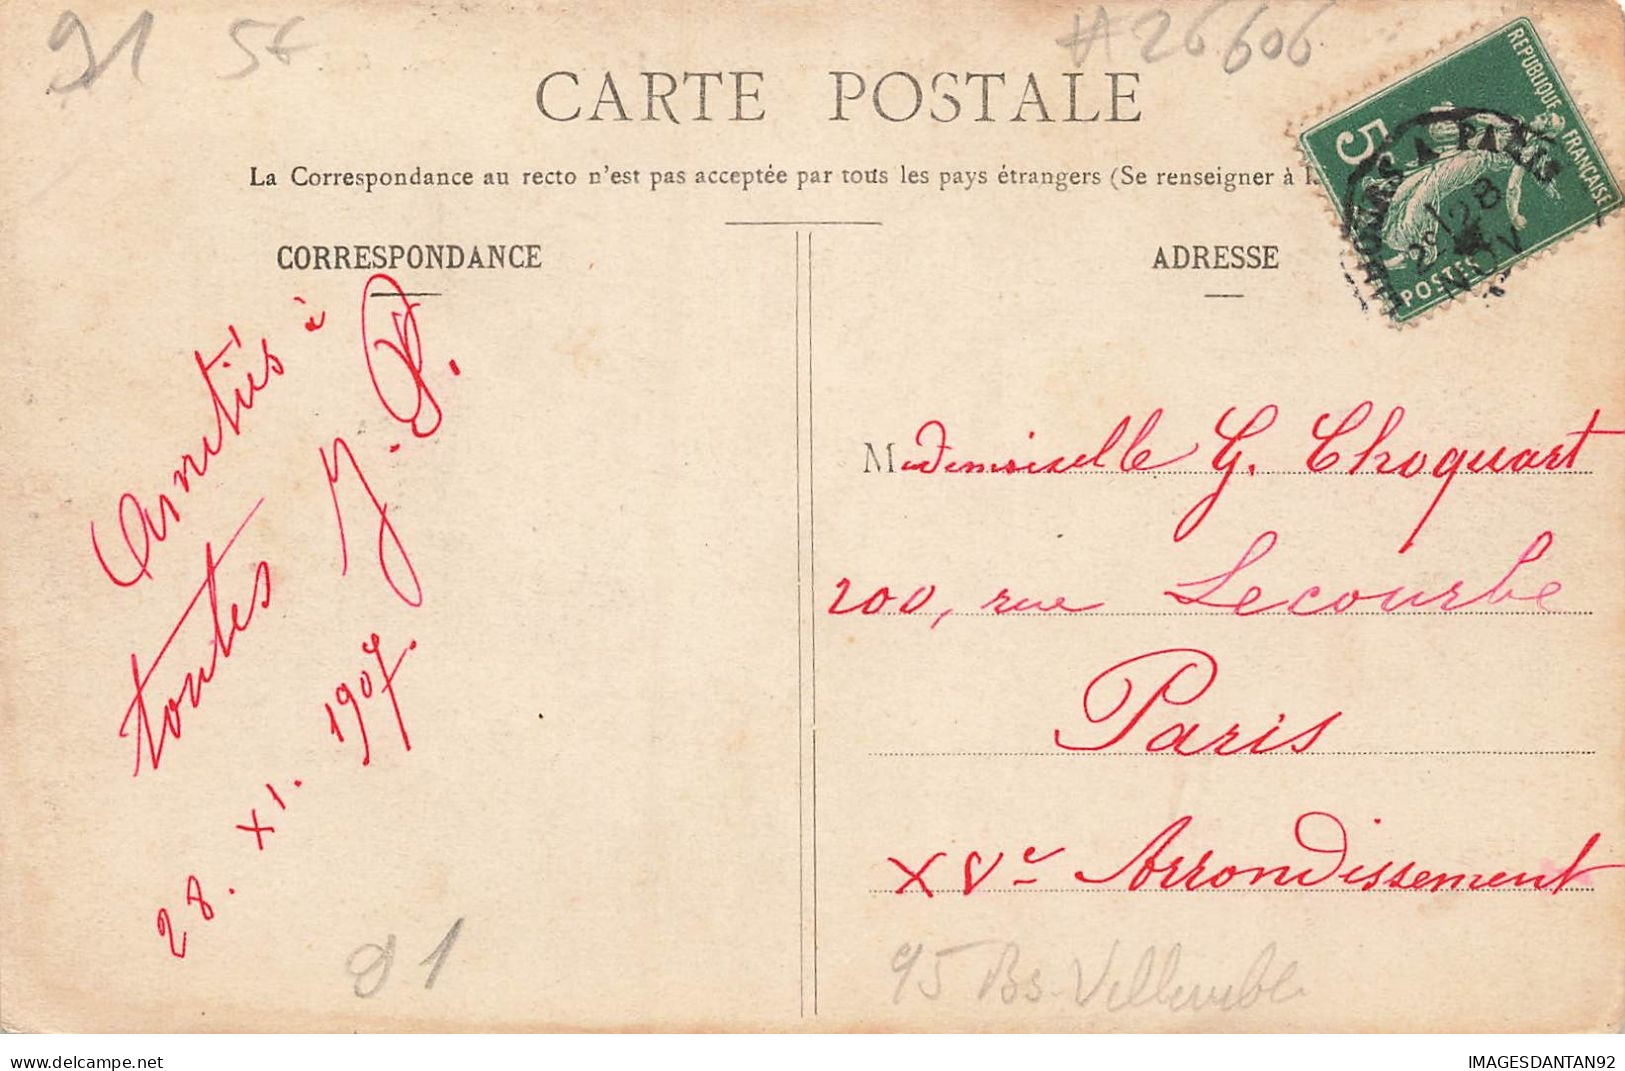 91 5€ #26606
CARTE POSTALE
La Correspondance au recto n'est pas acceptée par tous les pays étrangers (Se renseigner à la
CORRESPONDANCE
Amitiés à
toutes Y. P.
28. XI. 1907.
91
ADRESSE
RÉPUBLIQUE FRANÇAISE
5
POSTES
A PARIS
28
NOV
Mademoiselle G. Choquart
200, rue Lecourbe
Paris
XVe Arrondissement
95 Bs
IMAGESDANTAN92